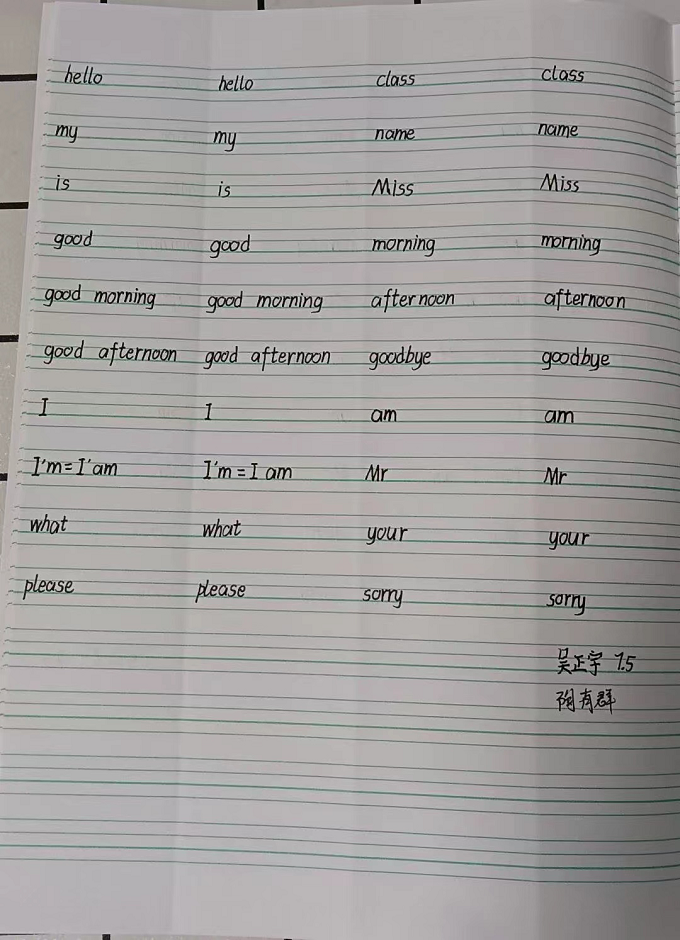 hello hello class class
my my name name
is is Miss Miss
good good morning morning
good morning good morning afternoon afternoon
good afternoon good afternoon goodbye goodbye
I I am am
I'm=I'am I'm=I am Mr Mr
what what your your
please please sorry sorry
吴正宇 7.5
陶有群